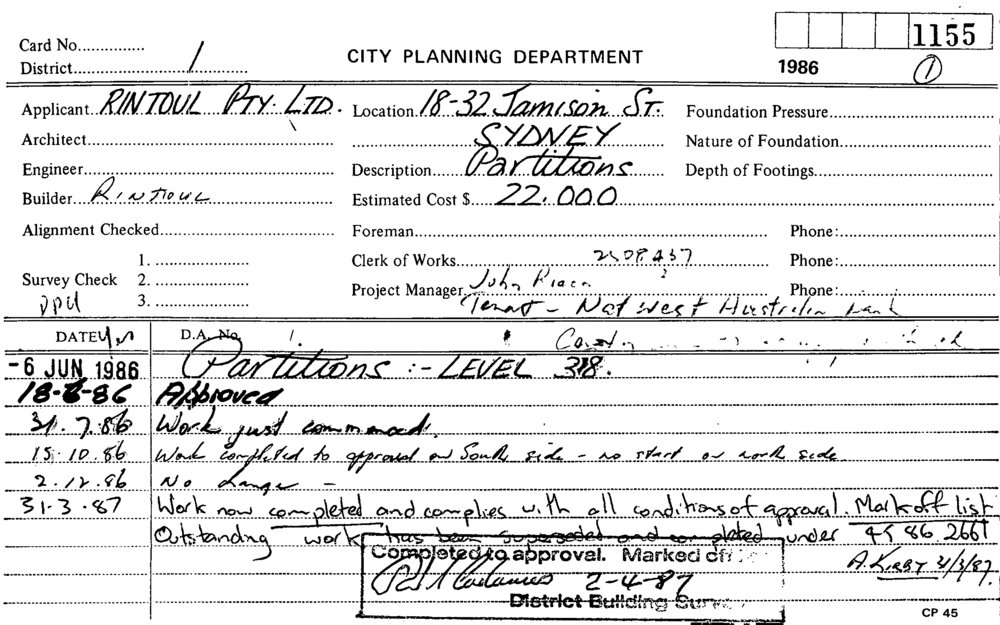 1155
Card No...............
District...... 1
CITY PLANNING DEPARTMENT
1986
1
Applicant RINTOUL PTY. LTD. Location 18-32 Jamison ST. Foundation Pressure
Architect SYDNEY Nature of Foundation
Engineer Description Partitions Depth of Footings
Builder RINTOUL Estimated Cost $ 22.000
Alignment Checked Foreman Phone:
1. Clerk of Works Phone:
Survey Check 2. Project Manager John Phone:
3. Tenant - Nat West Australia Bank
DATE D.A. No.
-6 JUN 1986 Partitions :- LEVEL
Approved
31.7.86 Work just commenced.
15.10.86 Work completed to approval on South side - no start on north side
2.12.86 No change -
31.3.87 Work now completed and complies with all conditions of approval. Mark off list
Outstanding work has been superseded and completed under 45 86 2661
Completed to approval. Marked off
A. KIRBY
2-4-87
District Building
CP 45